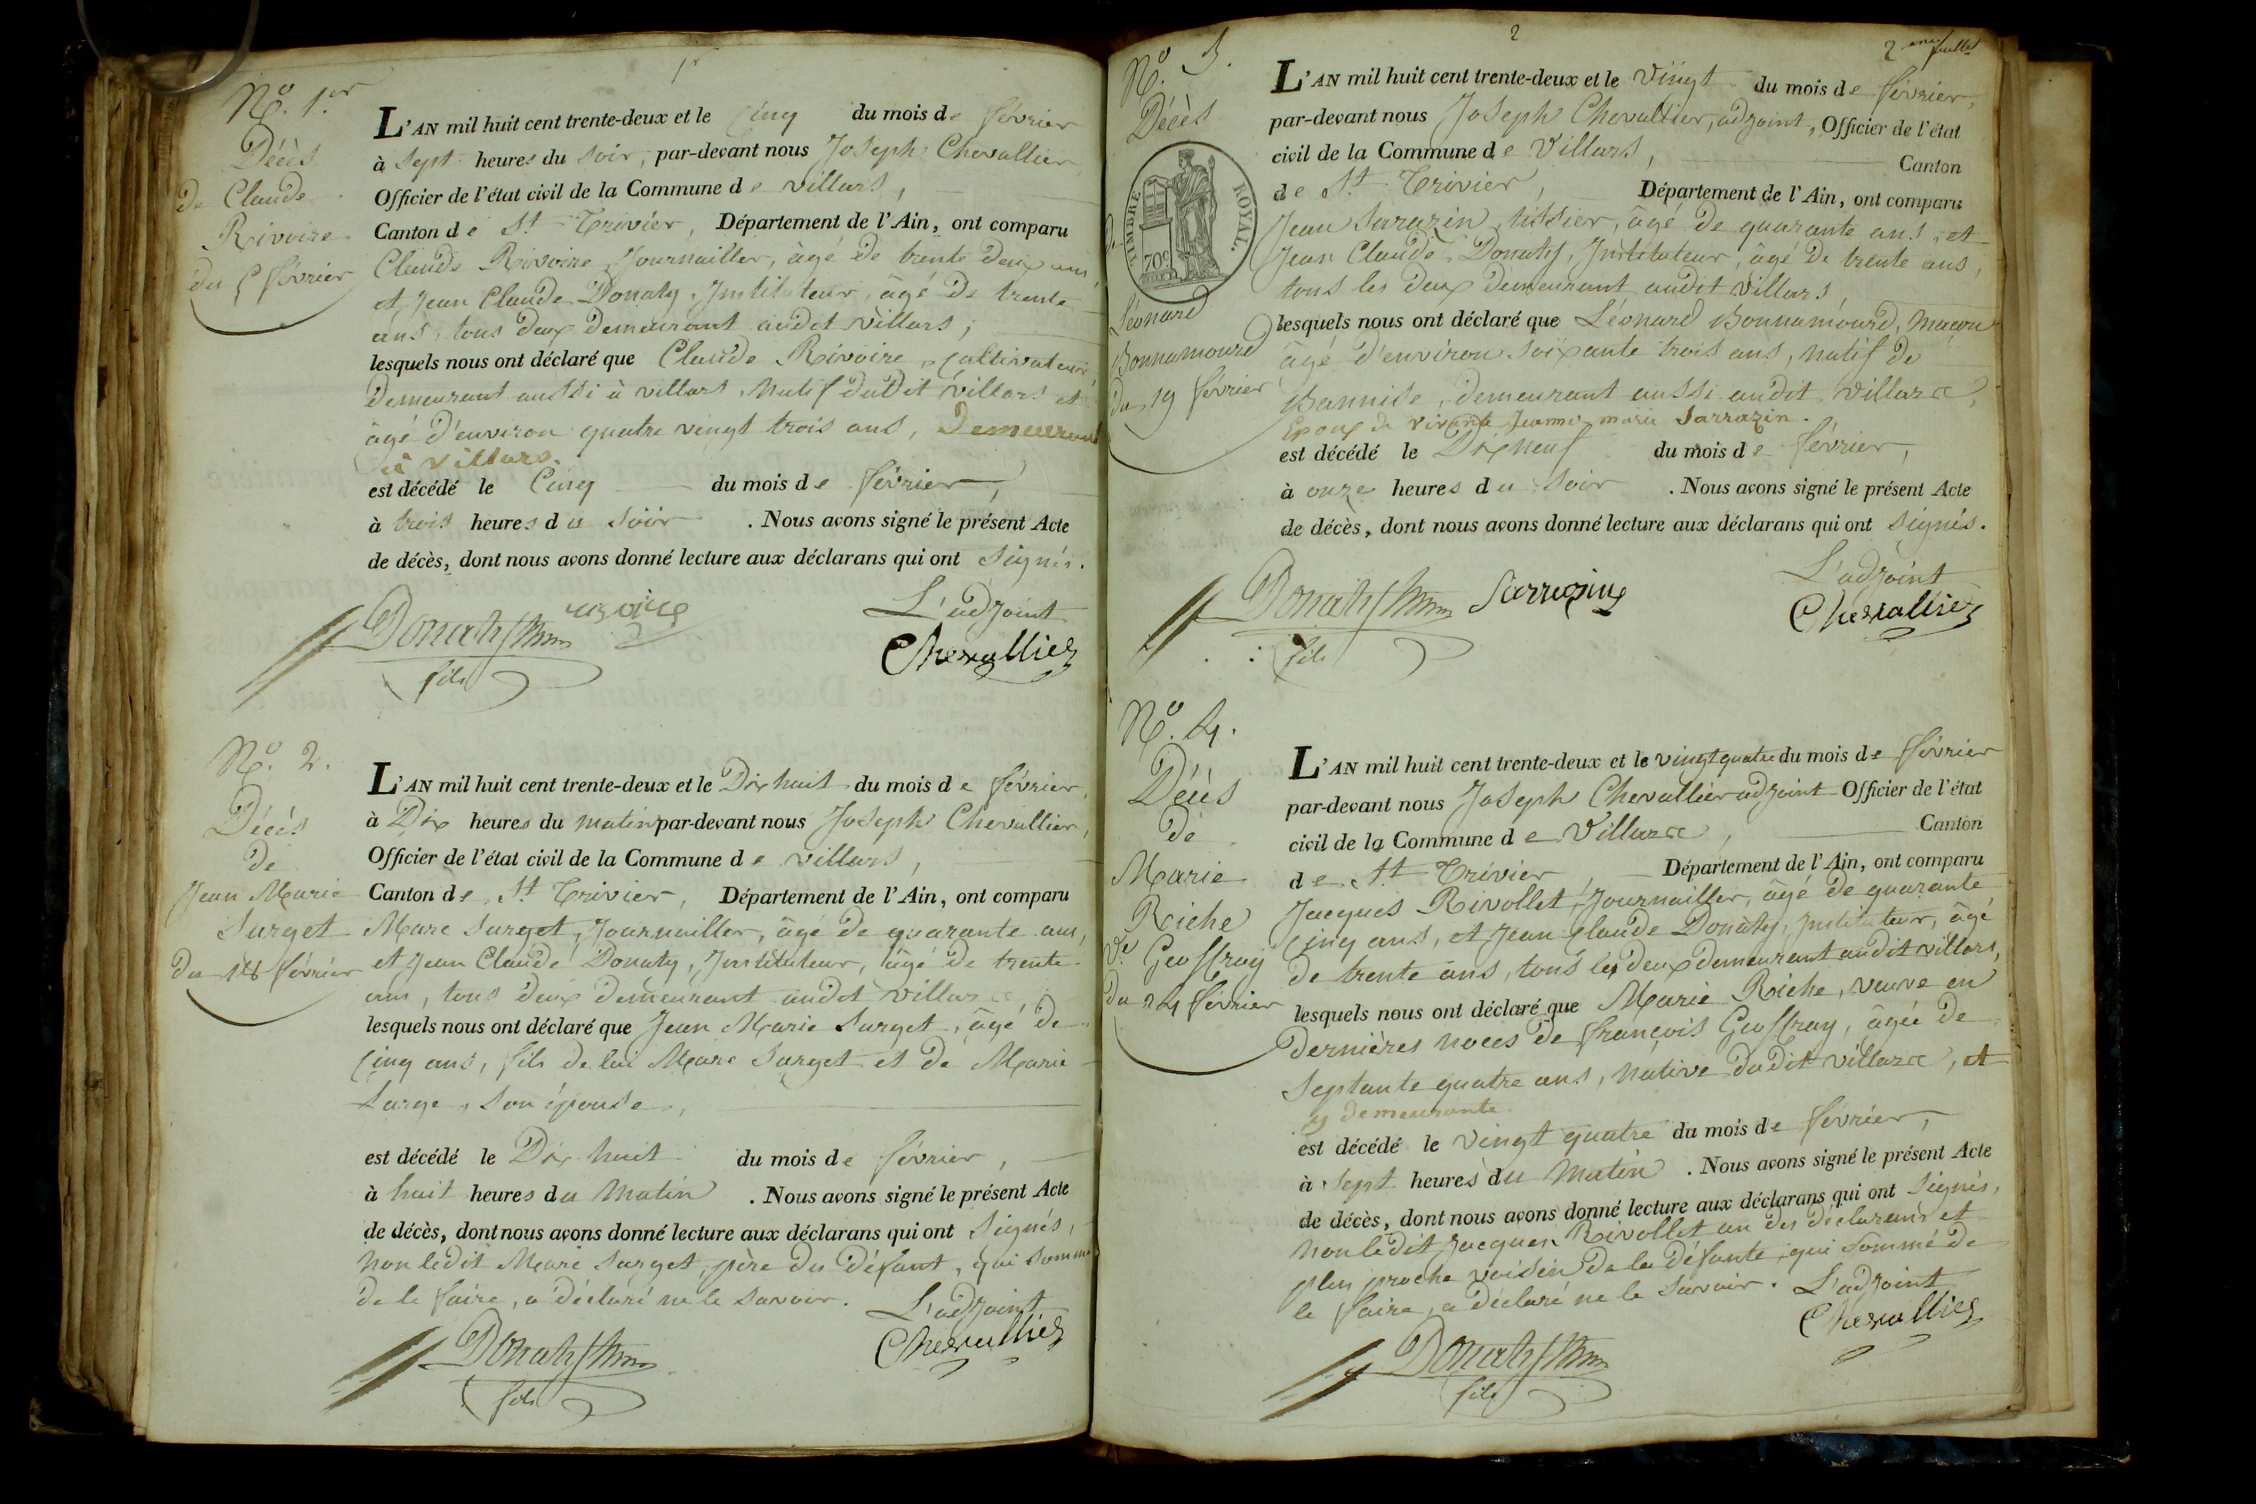 1r
No. 1.er
Décès
de Claude
Rivoire
du 5 février
L'AN mil huit cent trente-deux et le Cinq du mois de février
à Sept heures du Soir, par-devant nous Joseph Chevallier
Officier de l'état civil de la Commune de Villars,
Canton de St Trivier, Département de l'Ain, ont comparu
Claude Rivoire, Journailler, âgé de trente deux ans,
et Jean Claude Donaty, Instituteur, âgé de trente
ans, tous deux demeurant audit Villars;
lesquels nous ont déclaré que Claude Rivoire, Cultivateur,
demeurant aussi à villars, Natif dudit Villars et
âgé d'environ quatre vingt trois ans, Demeurant
à Villars.
est décédé le Cinq du mois de février,
à trois heures du Soir. Nous avons signé le présent Acte
de décès, dont nous avons donné lecture aux déclarans qui ont Signés.
L'adjoint
Donaty
Chevallier
fils
No. 2.
Décès
de
Jean Marie
Surget
du 18 février
L'AN mil huit cent trente-deux et le Dix huit du mois de février,
à Dix heures du matin par-devant nous Joseph Chevallier,
Officier de l'état civil de la Commune de villars,
Canton de St Trivier, Département de l'Ain, ont comparu
Marc Surget, Journailler, âgé de quarante ans,
et Jean Claude Donaty, Instituteur, âgé de trente
ans, tous deux demeurant audit Villars,
lesquels nous ont déclaré que Jean Marie Surget, âgé de
Cinq ans, fils de lui Marc Surget et de Marie
Surge, Son épouse,
est décédé le Dix huit du mois de février,
à huit heures du Matin. Nous avons signé le présent Acte
de décès, dont nous avons donné lecture aux déclarans qui ont Signés,
Non ledit Marc Surget, père du défunt, qui Sommé
de le faire, a déclaré ne le Savoir.
L'adjoint
Donaty
Chevallier
fils
2
2eme feuillet
No. 3.
Décès
de
TIMBRE ROYAL.
70c
Léonard
Bonnamourd
du 19 février
L'AN mil huit cent trente-deux et le Vingt du mois de février,
par-devant nous Joseph Chevallier, adjoint, Officier de l'état
civil de la Commune de Villars, Canton
de St Trivier, Département de l'Ain, ont comparu
Jean Sarazin, tissier, âgé de quarante ans, et
Jean Claude Donaty, Instituteur, âgé de trente ans,
tous les deux demeurant audit Villars,
lesquels nous ont déclaré que Léonard Bonnamourd, macon
âgé d'environ Soixante trois ans, natif de
Bannise, demeurant aussi audit Villars,
Epoux de vivante Jeanne marie Sarrazin.
est décédé le Dix neuf du mois de février,
à onze heures du Soir. Nous avons signé le présent Acte
de décès, dont nous avons donné lecture aux déclarans qui ont Signés.
L'adjoint
Donaty Sarrazin
Chevallier
fils
No. 4.
Décès
de
Marie
Riche
Ve Geoffray
du 24 février
L'AN mil huit cent trente-deux et le vingt quatre du mois de février
par-devant nous Joseph Chevallier adjoint Officier de l'état
civil de la Commune de Villars, Canton
de St Trivier, Département de l'Ain, ont comparu
Jacques Rivollet, Journailler, âgé de quarante
Cinq ans, et Jean Claude Donaty, Instituteur, âgé
de trente ans, tous les deux demeurant audit villars,
lesquels nous ont déclaré que Marie Riche, veuve en
dernières noces de françois Geoffray, âgée de
Septante quatre ans, Native dudit villars, et
y demeurante.
est décédé le Vingt quatre du mois de février,
à Sept heures du Matin. Nous avons signé le présent Acte
de décès, dont nous avons donné lecture aux déclarans qui ont Signés,
Non ledit Jacques Rivollet un des déclarans et
plus proche voisin de la défunte, qui Sommé de
le faire, a déclaré ne le Savoir. L'adjoint
Chevallier
Donaty
fils